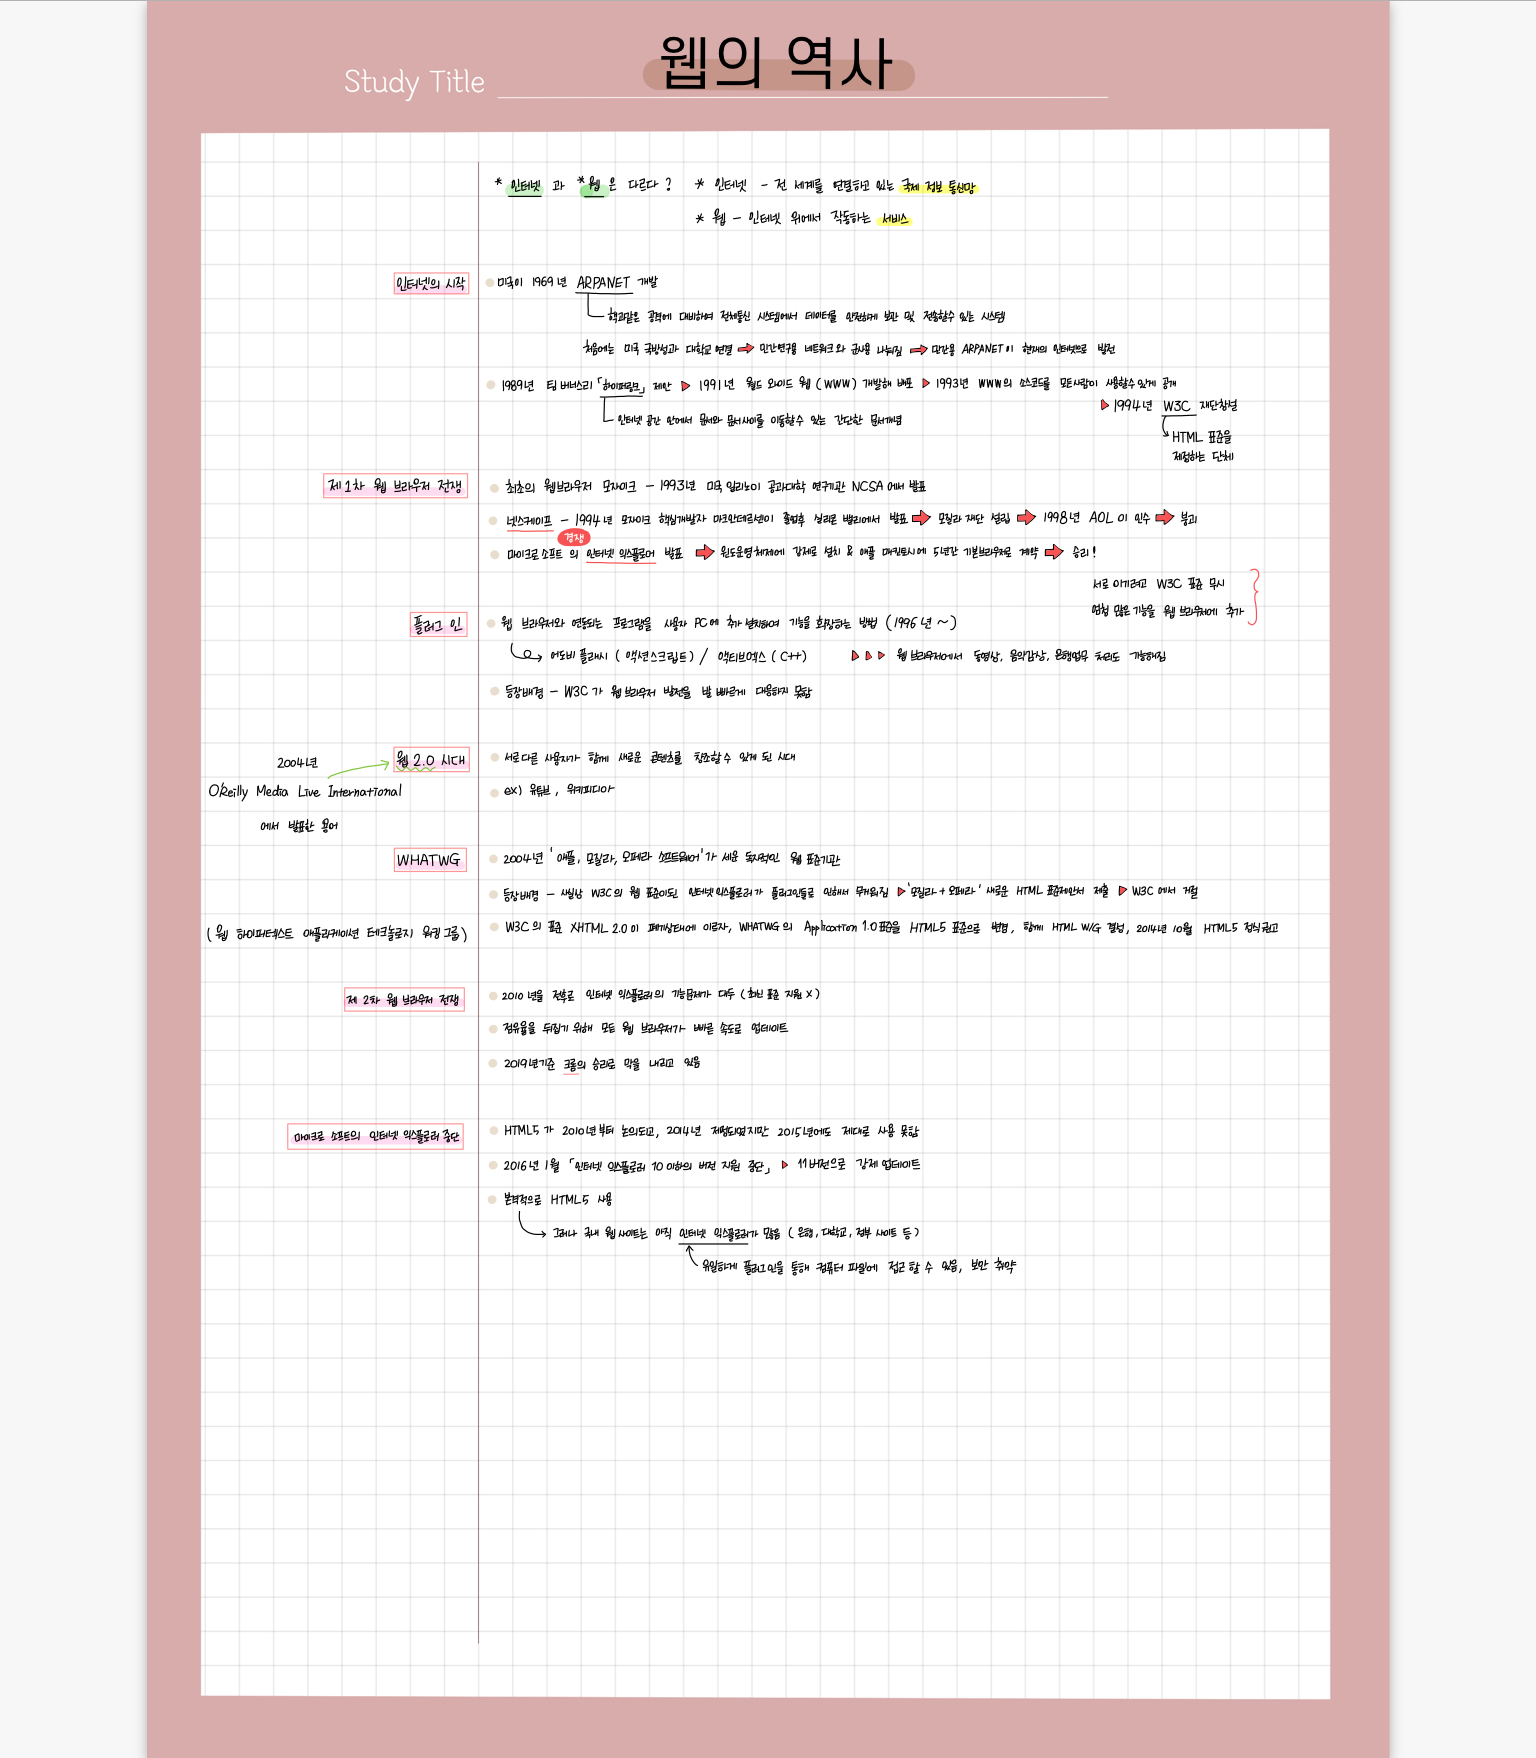 웹의 역사
Study Title
* 인터넷 과 * 웹 은 다르다 ? * 인터넷 - 전 세계를 연결하고 있는 국제 정보 통신망
* 웹 - 인터넷 위에서 작동하는 서비스
인터넷의 시작
미국이 1969년 ARPANET 개발
핵과같은 공격에 대비하여 전체통신 시스템에서 데이터를 안전하게 보관 및 전송할수 있는 시스템
처음에는 미국 국방성과 대학교 연결 → 민간연구용 네트워크와 군사용 나눠짐 → 민간용 ARPANET이 현재의 인터넷으로 발전
1989년 팀 버너스리 「하이퍼링크」 제안 ▶ 1991년 월드 와이드 웹 (WWW) 개발해 배포 ▶ 1993년 WWW의 소스코드를 모든사람이 사용할수있게 공개
▶ 1994년 W3C 재단창설
인터넷 공간 안에서 문서와 문서사이를 이동할수 있는 간단한 문서개념
HTML 표준을
제정하는 단체
제 1차 웹 브라우저 전쟁
최초의 웹브라우저 모자이크 - 1993년 미국 일리노이 공과대학 연구기관 NCSA 에서 발표
넷스케이프 - 1994년 모자이크 핵심개발자 마크안데르센이 졸업후 실리콘 밸리에서 발표 → 모질라 재단 설립 → 1998년 AOL 이 인수 → 붕괴
경쟁
마이크로소프트 의 인터넷 익스플로어 발표 → 윈도운영체제에 강제로 설치 & 애플 매킨토시에 5년간 기본브라우저로 계약 → 승리 !
서로 이기려고 W3C 표준 무시
엄청 많은 기능을 웹 브라우저에 추가
플러그 인
웹 브라우저와 연동되는 프로그램을 사용자 PC에 추가 설치하여 기능을 확장하는 방법 (1996년 ~)
어도비 플래시 ( 액션스크립트) / 액티브엑스 ( C++) ▶ ▶ ▶ 웹브라우저에서 동영상, 음악감상, 은행업무 처리도 가능해짐
등장배경 - W3C 가 웹브라우저 발전을 발 빠르게 대응하지 못함
2004년
웹 2.0 시대
O'Reilly Media Live International
에서 발표한 용어
서로다른 사용자가 함께 새로운 콘텐츠를 창조할수 있게 된 시대
ex) 유튜브 , 위키피디아
WHATWG
2004년 '애플, 모질라, 오페라 소프트웨어'가 세운 독자적인 웹 표준기관
등장배경 - 사실상 W3C의 웹 표준이된 인터넷익스플로러가 플러그인들로 인해서 무거워짐 ▶'모질라 + 오페라' 새로운 HTML 표준제안서 제출 ▶ W3C 에서 거절
( 웹 하이퍼텍스트 애플리케이션 테크놀로지 워킹그룹)
W3C의 표준 XHTML 2.0 이 폐기상태에 이르자, WHATWG의 Application 1.0 표준을 HTML5 표준으로 변경, 함께 HTML W/G 결성, 2014년 10월 HTML5 정식권고
제 2차 웹 브라우저 전쟁
2010년을 전후로 인터넷 익스플로러의 기능문제가 대두 (최신 표준 지원 X)
점유율을 뒤집기 위해 모든 웹 브라우저가 빠른 속도로 업데이트
2019년기준 크롬의 승리로 막을 내리고 있음
마이크로 소프트의 인터넷 익스플로러 중단
HTML5 가 2010년부터 논의되고, 2014년 제정되었지만 2015년에도 제대로 사용 못함
2016년 1월 「인터넷 익스플로러 10 이하의 버전 지원 중단」 ▶ 11버전으로 강제 업데이트
본격적으로 HTML5 사용
그러나 국내 웹사이트는 아직 인터넷 익스플로러가 많음 ( 은행, 대학교, 정부 사이트 등 )
유일하게 플러그인을 통해 컴퓨터 파일에 접근 할 수 있음, 보안 취약